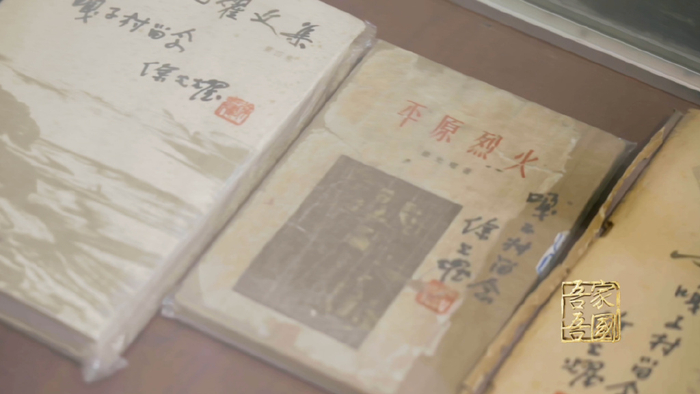 耀文集
嘎子村留念
徐光耀
平原烈火
徐光耀著
嘎子村留念
徐光耀
嘎子村留念
光耀
吾家
吾国